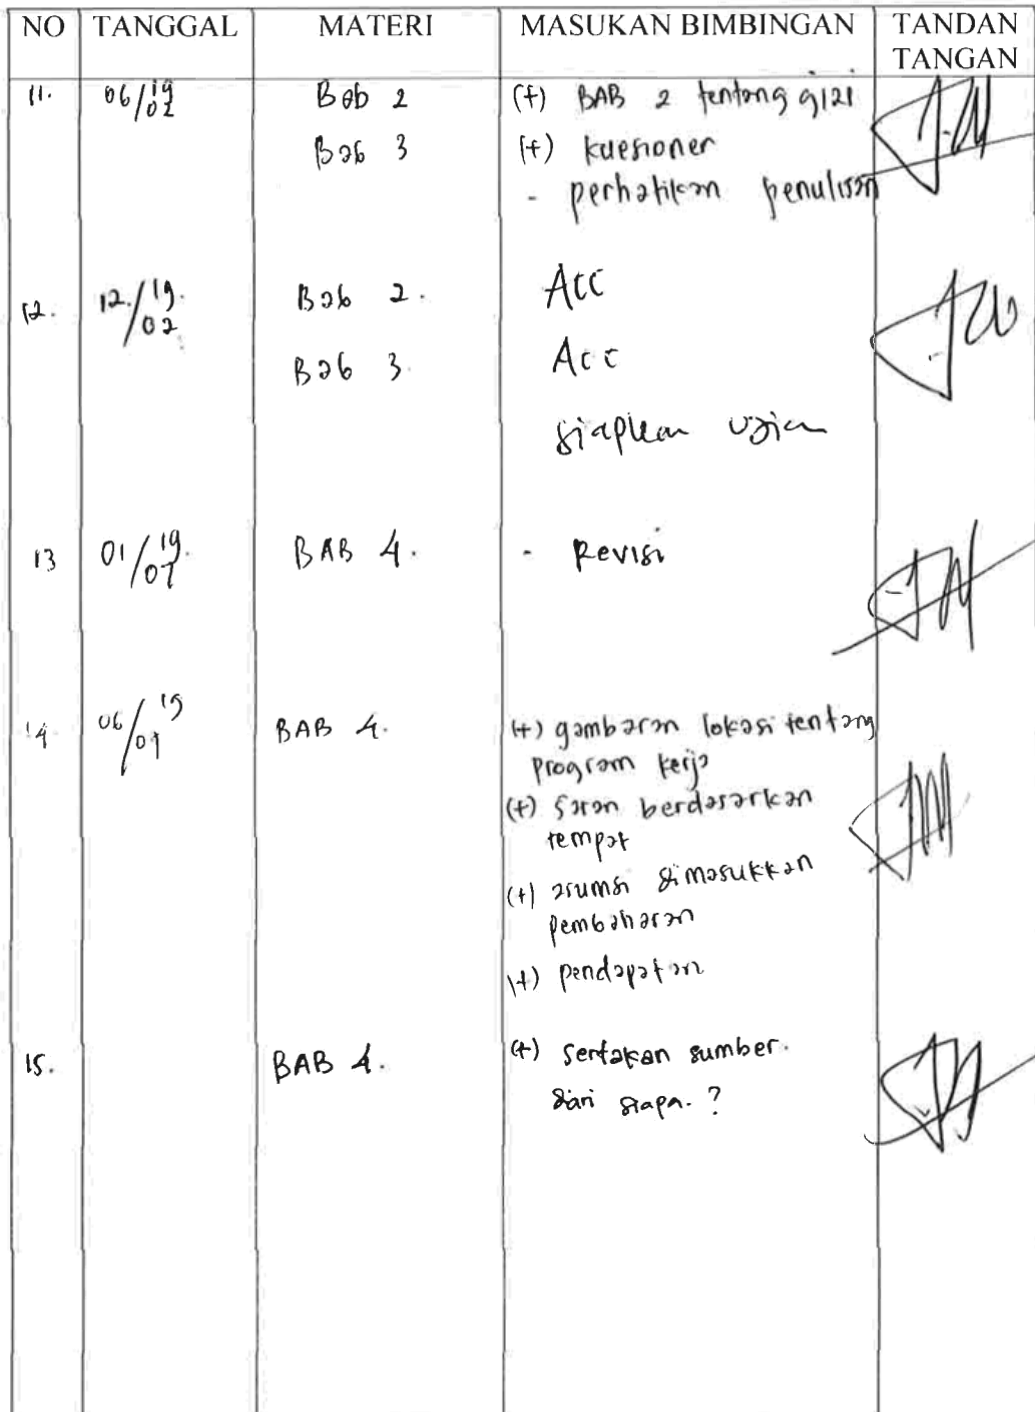 NO TANGGAL MATERI MASUKAN BIMBINGAN TANDAN
TANGAN
11. 06/02 19 Bab 2 (+) BAB 2 tentang gizi
Bab 3 (+) kuesioner
- perhatikan penulisan
12. 12/02 19. Bab 2. Acc
Bab 3. Acc
siapkan ujian
13 01/07 19. BAB 4. - Revisi
14 06/ 19 BAB 4. (+) gambaran lokasi tentang
program kerja
(+) saran berdasarkan
tempat
(+) asumsi dimasukkan
pembahasan
(+) pendapatan
15. BAB 4. (+) sertakan sumber.
dari siapa. ?